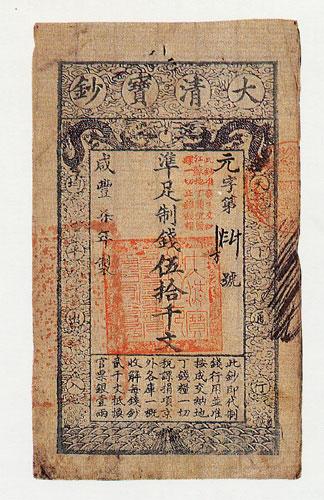 大清寶鈔
天下通行
元字第 號
準足制錢伍拾千文
咸豐 年製
均平出入
此鈔即代制
錢行用並准
按成交納地
丁錢糧一切
稅課捐項京
外各庫一概
收解每錢鈔
貳千文抵換
官票銀壹兩